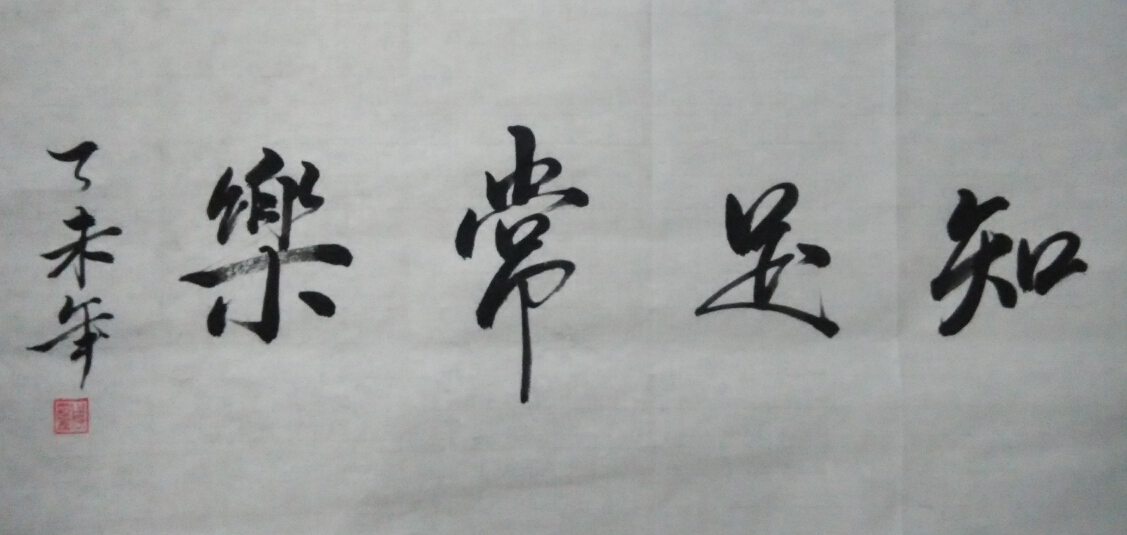 知足常樂
丁未年